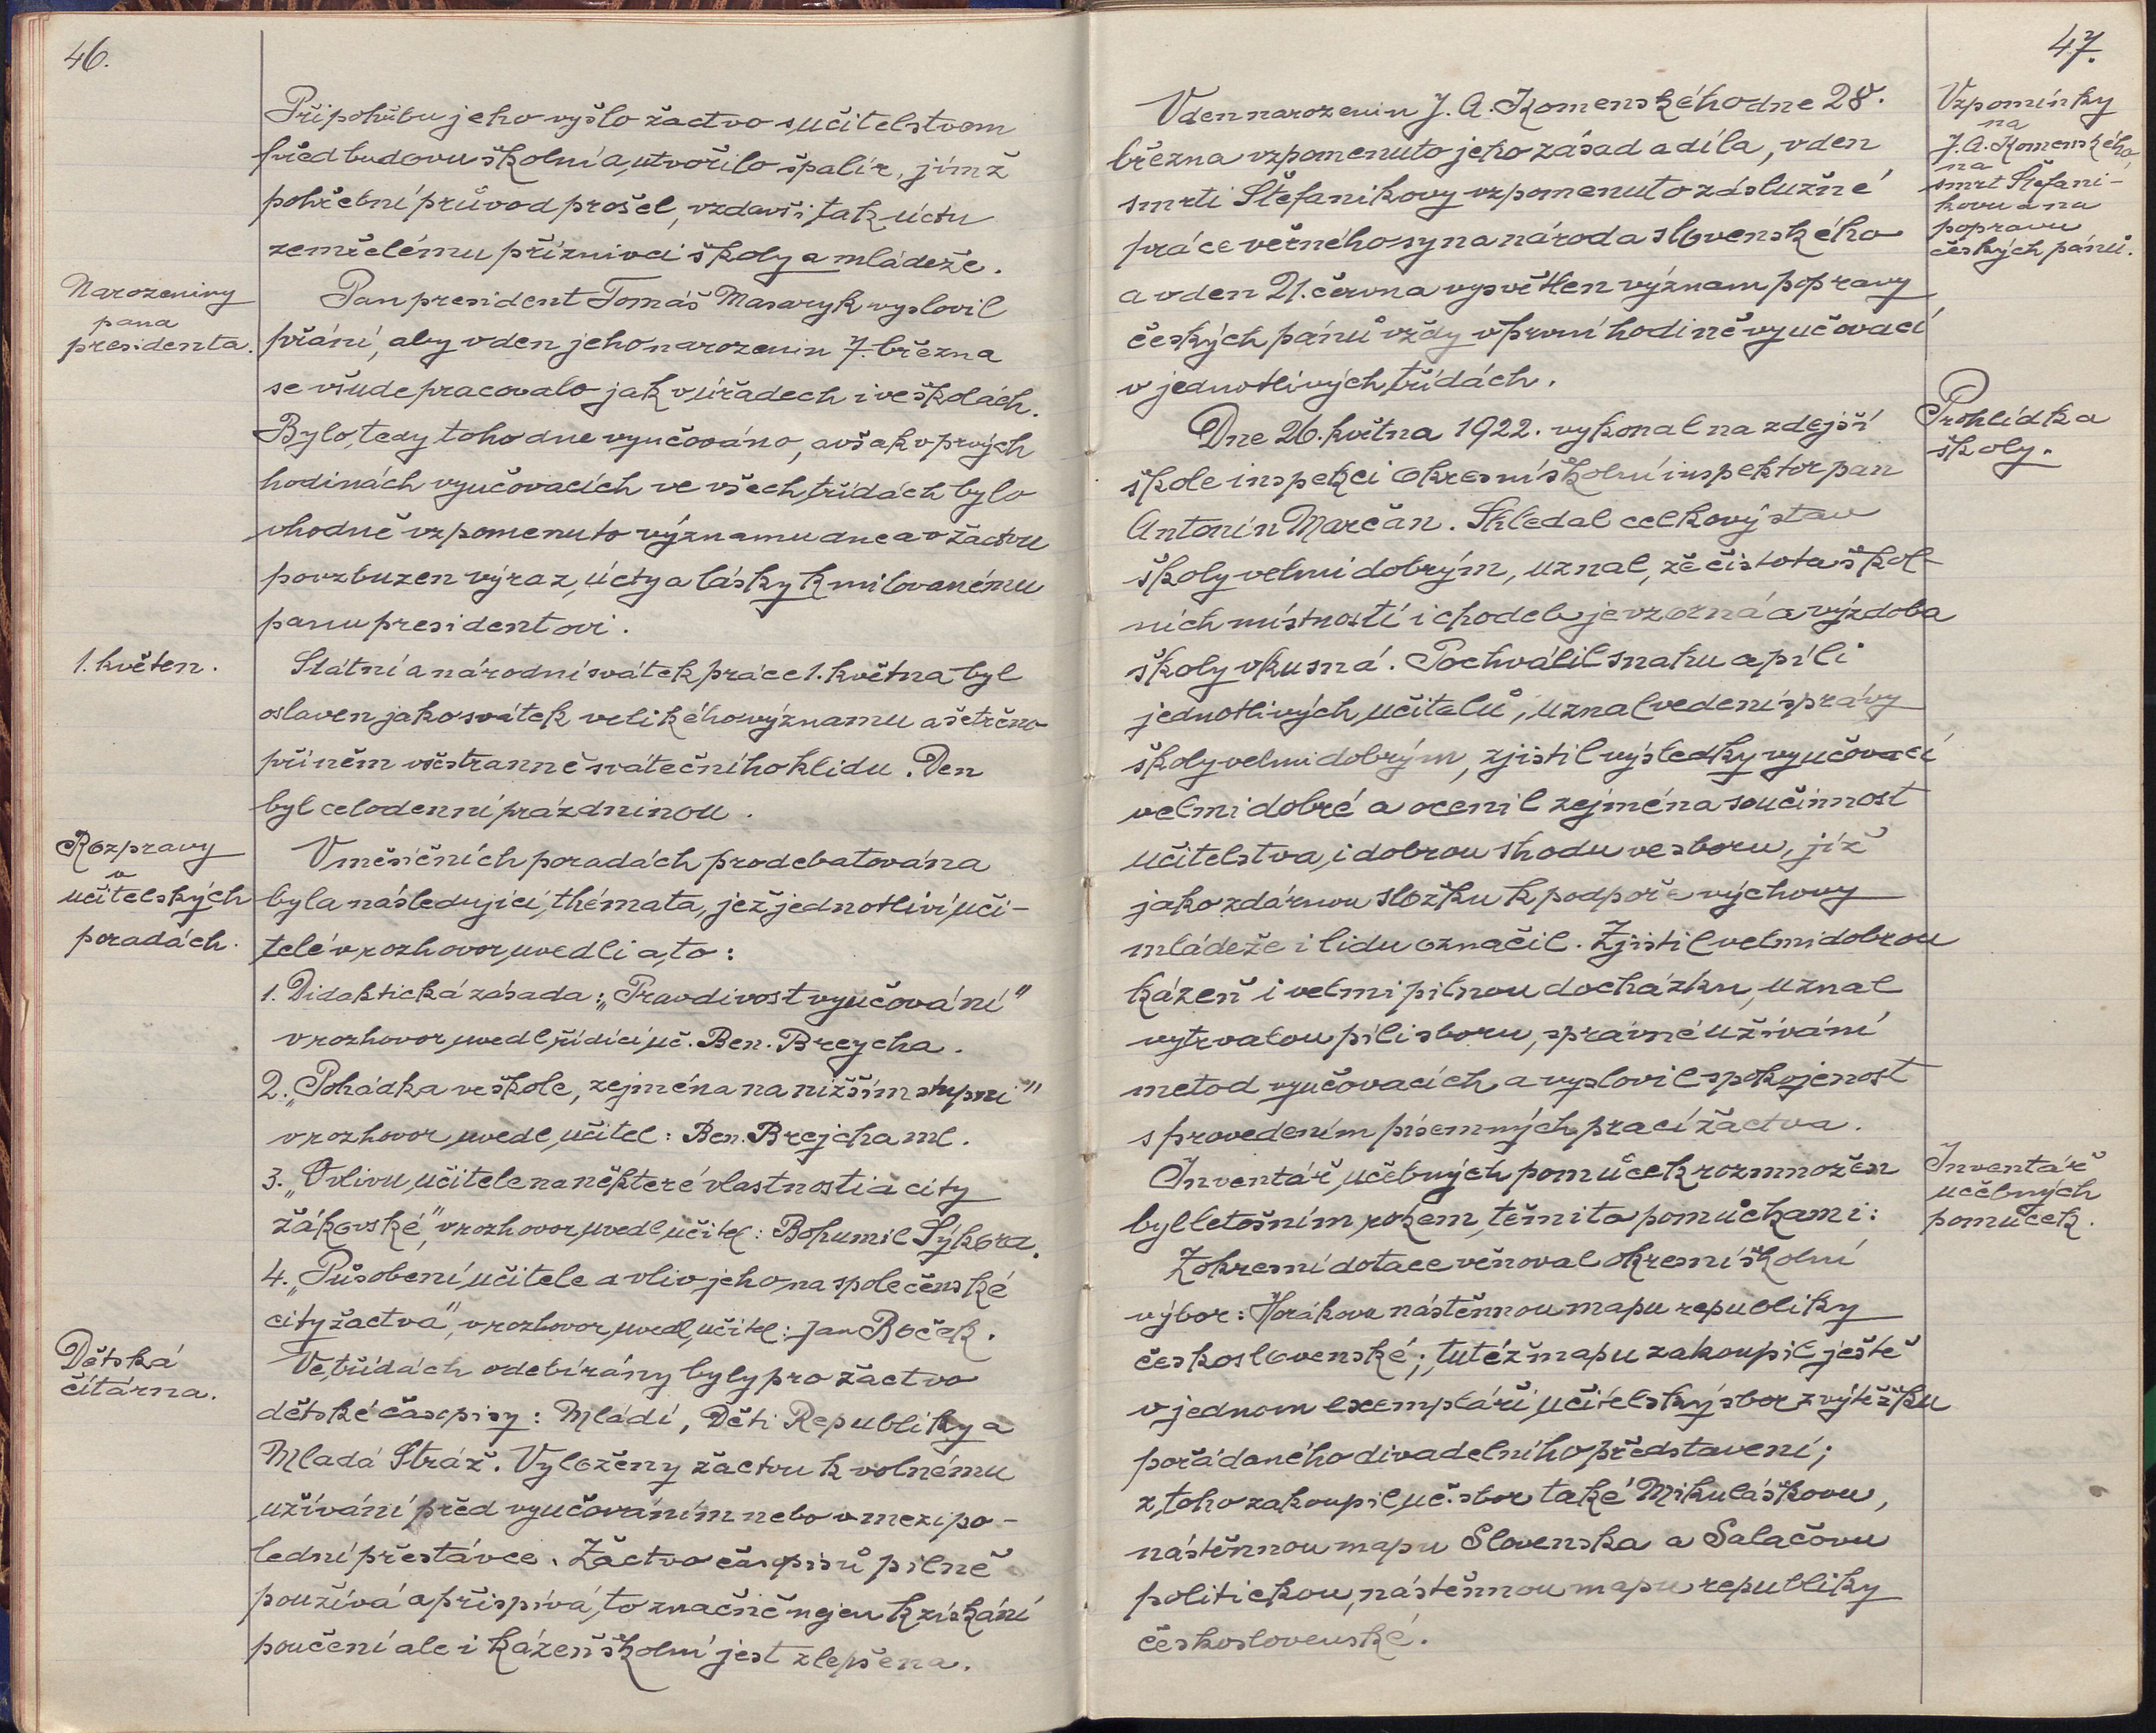 46.
Při pohřbu jeho vyšlo žactvo s učitelstvem
před budovu školní a utvořilo špalír, jímž
pohřební průvod prošel, vzdavši tak úctu
zemřelému příznivci školy a mládeže.
Narozeniny
pana
presidenta.
Pan president Tomáš Masaryk vyslovil
přání, aby v den jeho narozenin 7. března
se všude pracovalo jak v úřadech i ve školách.
Bylo tedy toho dne vyučováno, avšak v prvých
hodinách vyučovacích ve všech třídách bylo
vhodně vzpomenuto významu dne a v žactvu
povzbuzen výraz úcty a lásky k milovanému
panu presidentovi.
1. květen.
Státní a národní svátek práce 1. května byl
oslaven jako svátek velikého významu a šetřeno
při něm všestranně svátečního klidu. Den
byl celodenní prázdninou.
Rozpravy
v
učitelských
poradách.
V měsíčních poradách prodebatována
byla následující thémata, jež jednotliví uči-
telé v rozhovor uvedli a to:
1. Didaktická zásada: „Pravdivost vyučování"
v rozhovor uvedl řídící uč. Ben. Breycha.
2. „Pohádka ve škole, zejména na nižším stupni"
v rozhovor uvedl učitel: Ben. Brejcha ml.
3. „O vlivu učitele na některé vlastnosti a city
žákovské", v rozhovor uvedl učitel: Bohumil Sýkora.
4. „Působení učitele a vliv jeho na společenské
city žactva", v rozhovor uvedl učitel: Jan Boček.
Dětská
čítárna.
Ve třídách odebírány byly pro žactvo
dětské časopisy: Mládí, Děti Republiky a
Mladá Stráž. Vyloženy žactvu k volnému
užívání před vyučováním nebo v mezipo-
lední přestávce. Žactvo časopisů pilně
používá a přispívá to značně nejen k získání
poučení ale i kázeň školní jest zlepšena.
47.
Vzpomínky
na
J. A. Komenského,
na
smrt Štefani-
kovu a na
popravu
českých pánů.
V den narozenin J. A. Komenského dne 28.
března vzpomenuto jeho zásad a díla, v den
smrti Štefanikovy vzpomenuto záslužné
práce věrného syna národa slovenského
a v den 21. června vysvětlen význam popravy
českých pánů vždy v první hodině vyučovací
v jednotlivých třídách.
Prohlídka
školy.
Dne 26. května 1922. vykonal na zdejší
škole inspekci okresní školní inspektor pan
Antonín Marčan. Shledal celkový stav
školy velmi dobrým, uznal, že čistota škol-
ních místností i chodeb je vzorná a výzdoba
školy vkusná. Pochválil snahu a píli
jednotlivých učitelů, uznal vedení správy
školy velmi dobrým, zjistil výsledky vyučovací
velmi dobré a ocenil zejména součinnost
učitelstva i dobrou shodu ve sboru, již
jako zdárnou složku k podpoře výchovy
mládeže i lidu označil. Zjistil velmi dobrou
kázeň i velmi pilnou docházku, uznal
vytrvalou píli sboru, správné užívání
metod vyučovacích a vyslovil spokojenost
s provedením písemných prací žactva.
Inventář
učebných
pomůcek.
Inventář učebných pomůcek rozmnožen
byl letošním rokem těmito pomůckami:
Z okresní dotace věnoval okresní školní
výbor: Horákovu nástěnnou mapu republiky
československé; tutéž mapu zakoupil ještě
v jednom exempláři učitelský sbor z výtěžku
pořádaného divadelního představení;
z toho zakoupil uč. sbor také Mikuláškovu,
nástěnnou mapu Slovenska a Salačovu
politickou nástěnnou mapu republiky
československé.